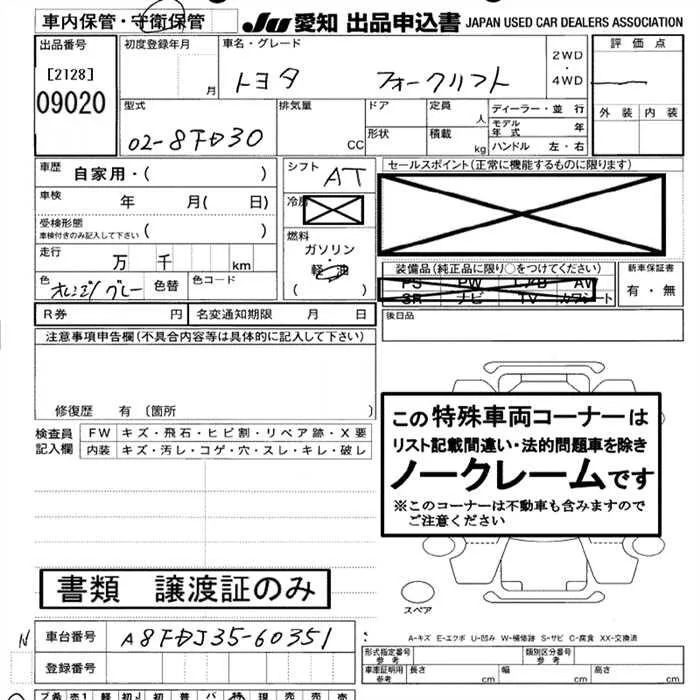 車内保管・守衛保管
JU 愛知 出品申込書 JAPAN USED CAR DEALERS ASSOCIATION
出品番号
[2128]
09020
初度登録年月
月
車名・グレード
トヨタ フォークリフト
2WD
・
4WD
評価点
外装 内装
型式
02-8FD30
排気量
CC
ドア
形状
定員
人
積載
kg
ディーラー・並 行
モデル年式 年
ハンドル 左・右
車歴
自家用・( )
車検
年 月( 日)
受検形態
車検付きのみ記入して下さい ( )
走行
万 千 km
色
オレンジ/グレー
色替
色コード
シフト
AT
冷房
燃料
ガソリン
・
軽油
( )
セールスポイント(正常に機能するものに限ります)
装備品(純正品に限り○をつけてください)
PS PW エアB AW
SR ナビ TV カワシート
新車保証書
有・無
R券 円
名変通知期限 月 日
後日品
注意事項申告欄(不具合内容等は具体的に記入して下さい)
修復歴 有 〔箇所 〕
検査員記入欄
FW キズ・飛石・ヒビ割・リペア跡・X要
内装 キズ・汚レ・コゲ・穴・スレ・キレ・破レ
この特殊車両コーナーは
リスト記載間違い・法的問題車を除き
ノークレームです
※このコーナーは不動車も含みますので
ご注意ください
書類 譲渡証のみ
スペア
N 車台番号 A8FDJ35-60351
登録番号
A-キズ E-エクボ U-凹み W-補修跡 S-サビ C-腐食 XX-交換済
形式指定番号
参考
類別区分番号
参考
車庫証明用
参考
長さ cm 幅 cm 高さ cm